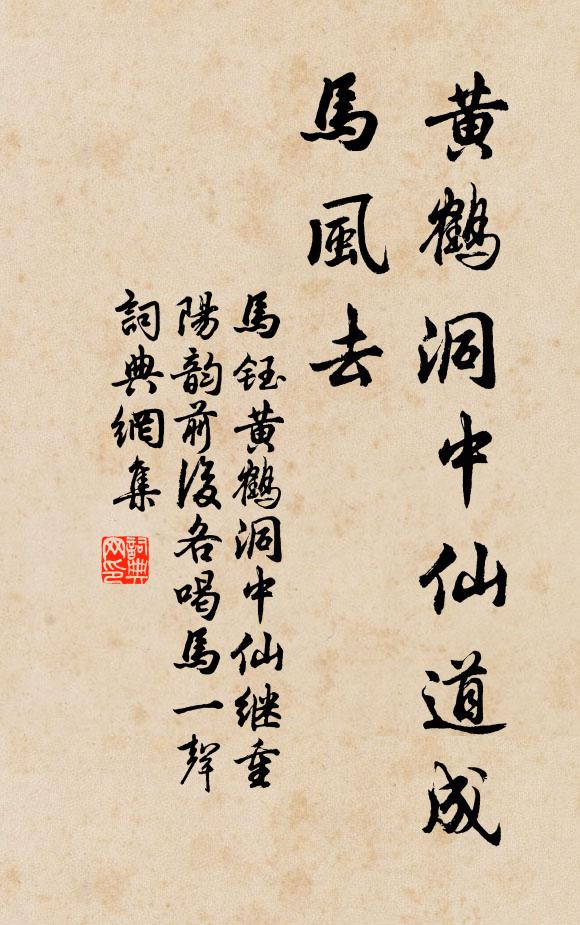 黄鶴洞中仙道成
馬風去
馬鈺黄鶴洞中仙继重
陽韵前後各喝馬一聲
詞典網集
詞典網印